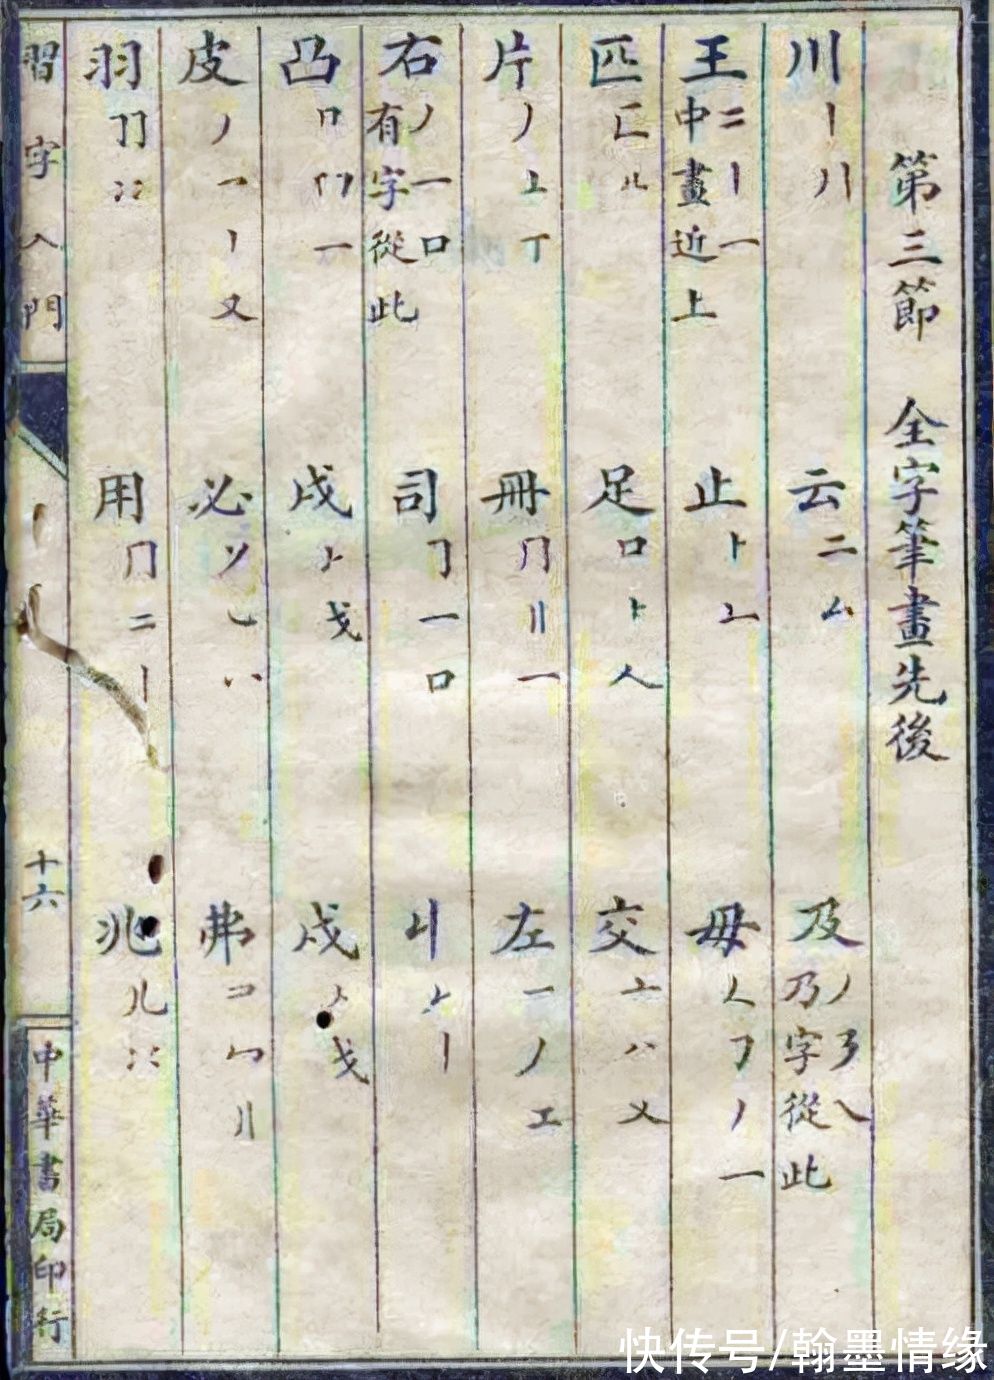 第三節 全字筆畫先後
川 丨 八 云 二 厶 及 丿 𠄎 ㇏ 乃字從此
王 二 丨 一 中畫近上 止 ⺊ 毋 𠃊 丿 一
匹 匚 儿 足 口 ⺊ 人 交 亠 八 乂
片 丿 丄 丅 冊 冂 〢 一 左 一 丿 工
右 丿 一 口 有字從此 司 𠃌 一 口 丩 丨
凸 一 戍 戈 戌 戈
皮 丿 乛 丨 又 必 弗 コ
羽 用 冂 二 丨 兆 儿
習字入門
十六
中華書局印行
快传号/翰墨情缘